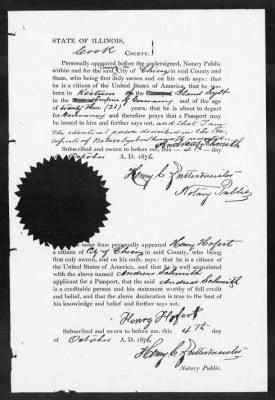 STATE OF ILLINOIS,
Cook COUNTY.
Personally appeared before the undersigned, Notary Public
within and for the said City of Chicago in said County and
State, who being first duly sworn and on his oath says: that
he is a citizen of the United States of America, that he was
born in Keitum of the Island Sylt
in the Empire of Germany and of the age
of twenty two (22) years, that he is about to depart
for Germany and therefore prays that a Passport may
be issued to him and further says not. and that I am
the identical person described in the
Andreas Schmith
Subscribed and sworn to before me, this 4 day
October A. D. 1876.
Henry C. Zuttermeister
Notary Public
same time personally appeared Henry Hofert
a citizen of City of Chicago in said County, who being
first duly sworn, and on oath, says: that he is a citizen of the
United States of America, and that he is well acquainted
with the above named Andreas Schmith
applicant for a Passport, that the said Andreas Schmith
is a creditable person and his statement worthy of full credit
and belief, and that the above declaration is true to the best of
his knowledge and belief and further says not.
Henry Hofert
Subscribed and sworn to before me, this 4th day
of October A. D. 1876
Henry C. Zuttermeister
Notary Public.